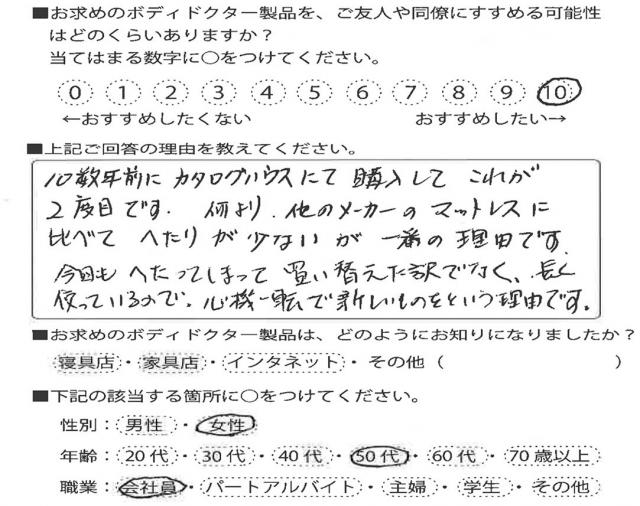 ■お求めのボディドクター製品を、ご友人や同僚にすすめる可能性
はどのくらいありますか？
当てはまる数字に○をつけてください。
0 1 2 3 4 5 6 7 8 9 10
←おすすめしたくない おすすめしたい→
■上記ご回答の理由を教えてください。
10数年前に カタログハウスにて 購入して これが
2度目です. 何より. 他のメーカーの マットレスに
比べて へたり が 少ないが 一番の 理由です
今回も へたってしまって 買い替えた訳でなく、長く
使っているので、心機一転で新しいものをという理由です。
■お求めのボディドクター製品は、どのようにお知りになりましたか？
寝具店・家具店・インタネット・その他（ ）
■下記の該当する箇所に○をつけてください。
性別：男性・女性
年齢：20代・30代・40代・50代・60代・70歳以上
職業：会社員・パートアルバイト・主婦・学生・その他